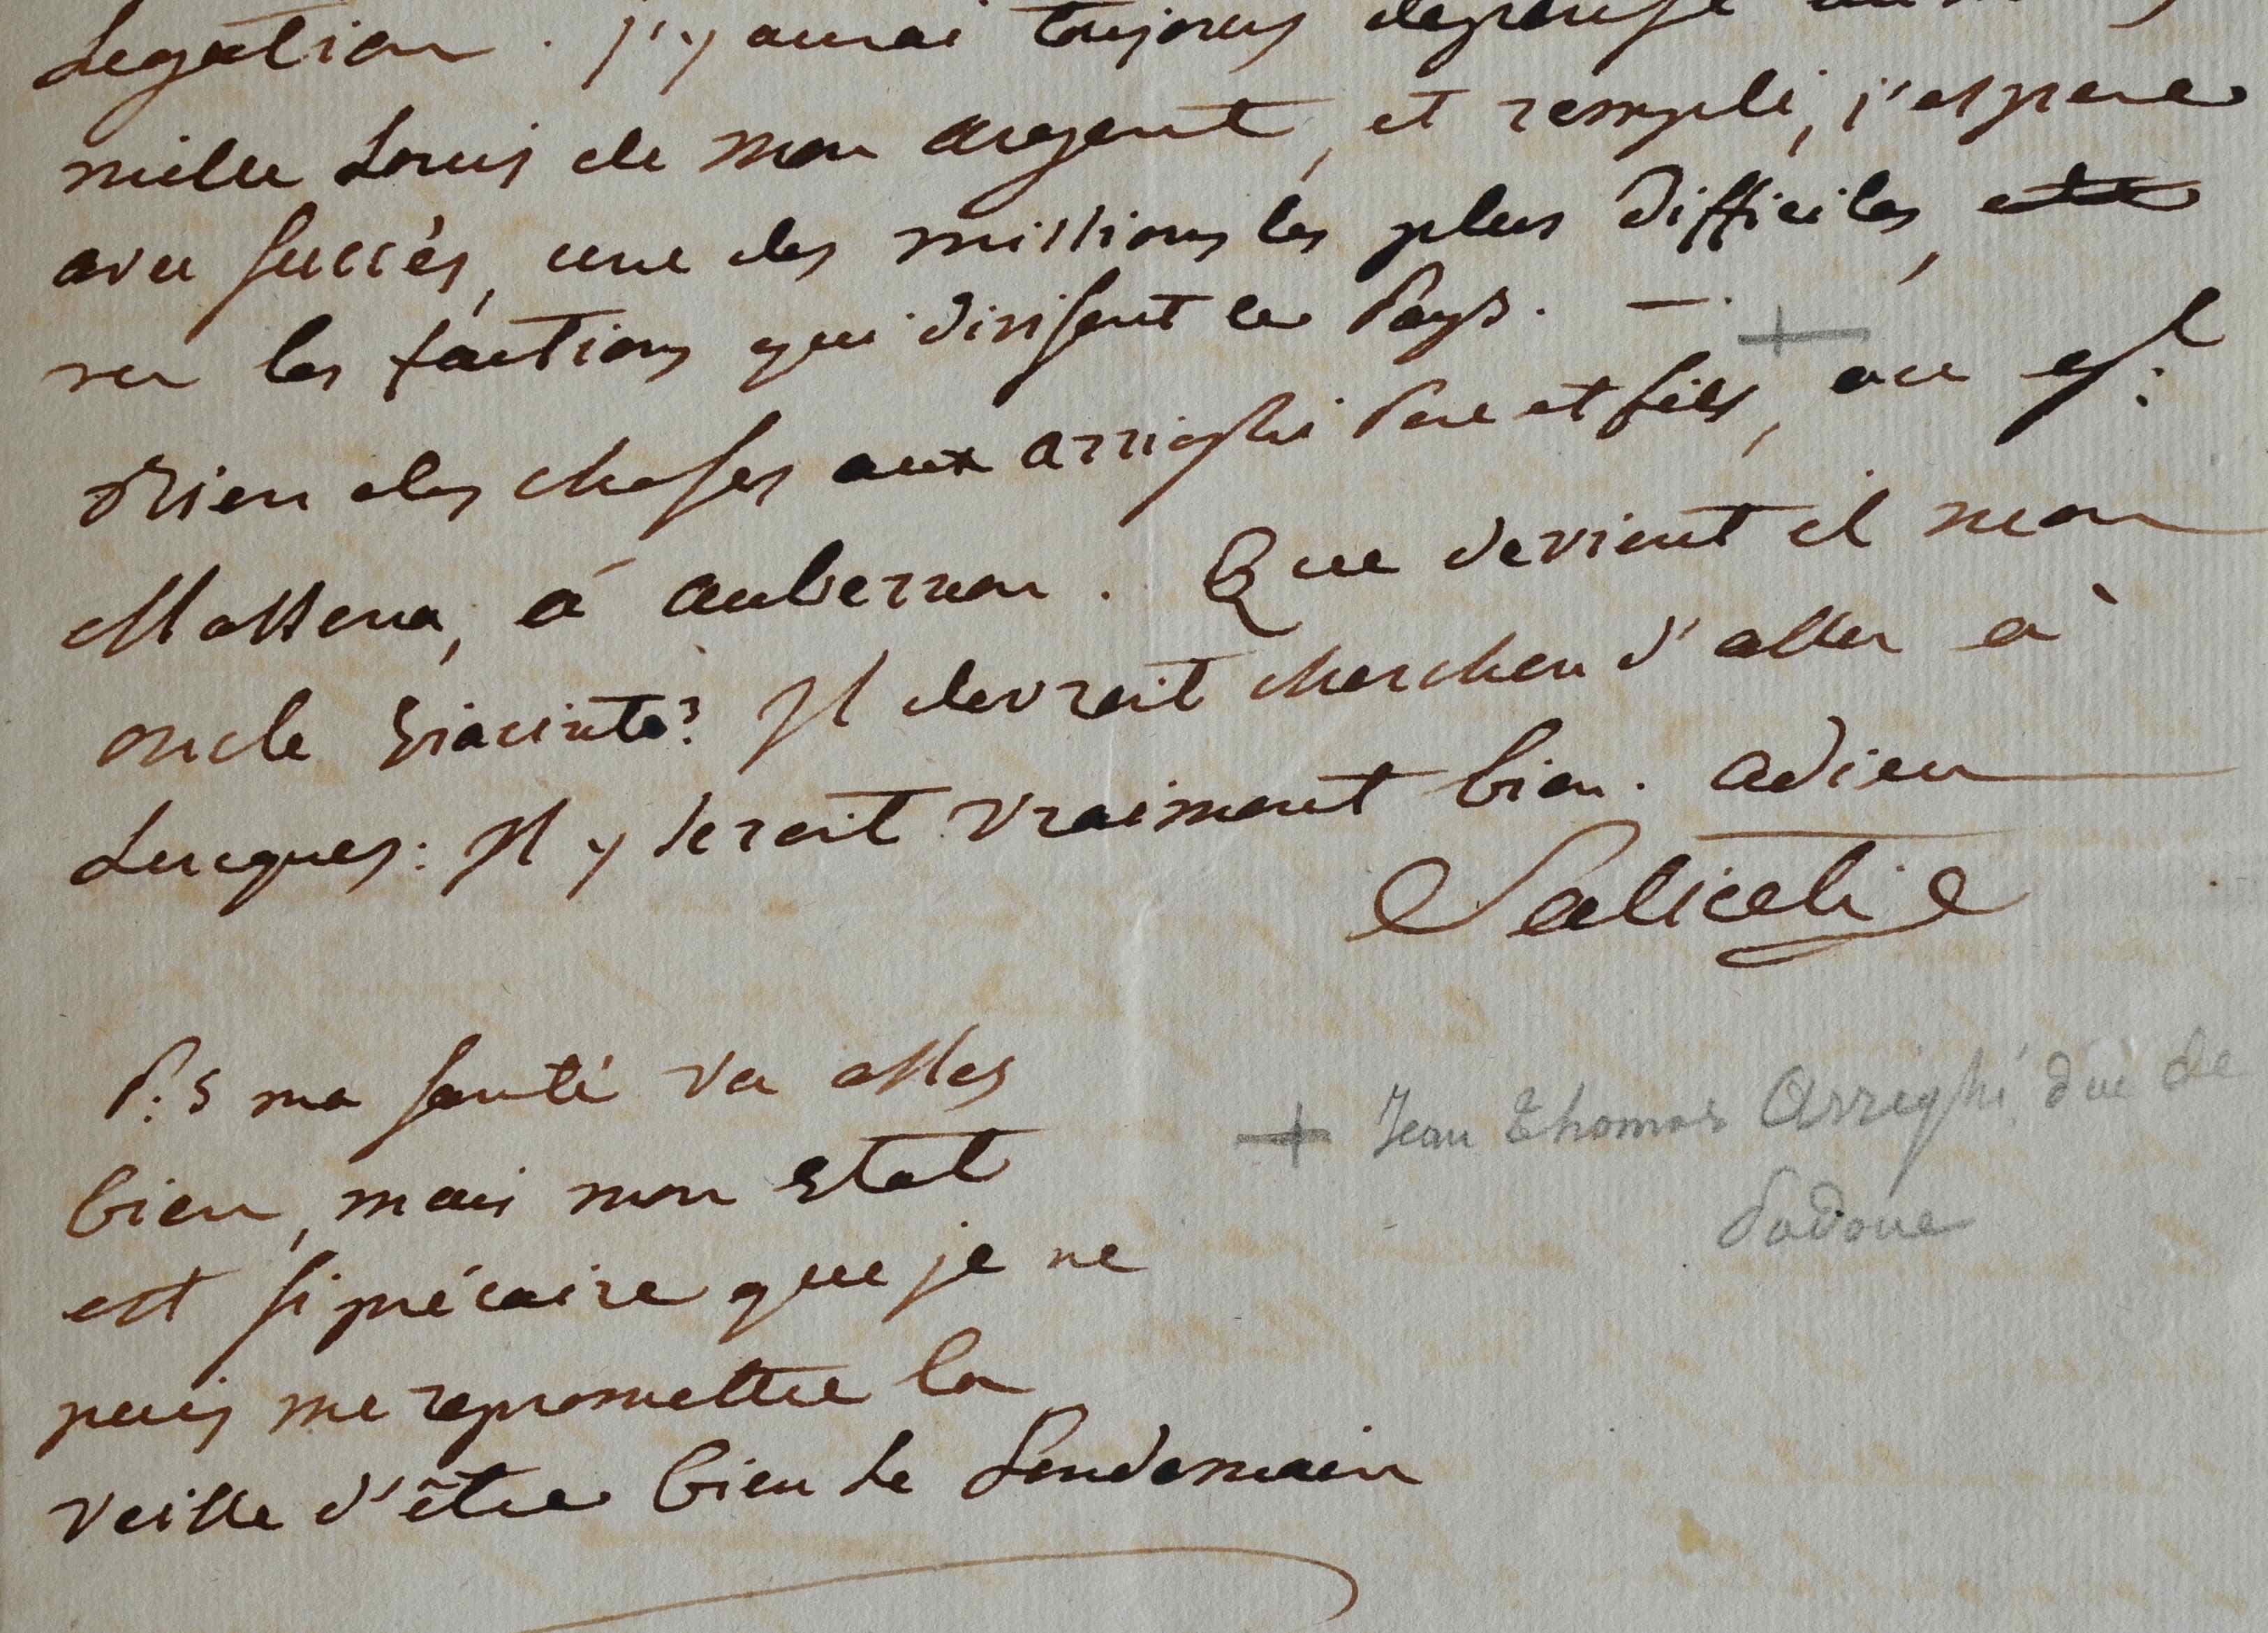 Legation. j'y aurai toujours depensé
mille Louis de mon argent, et rempli, j'espere
avec succès, une des missions les plus difficiles,
vu les factions qui divisent le Pays. —
Bien des choses aux arrighi Pere et fils, au gl.
Massena, à aubernon. Que devient il mon
oncle Giacinto? Il devrait chercher d'aller à
Lucques: Il y serait vraiment bien. adieu
Saliceti
P.S ma santé va asses
bien, mais mon etat
est si précaire que je ne
puis me repromettre la
veille d'être bien le Lendemain
+ Jean Thomas Arrighi duc de
Padoue